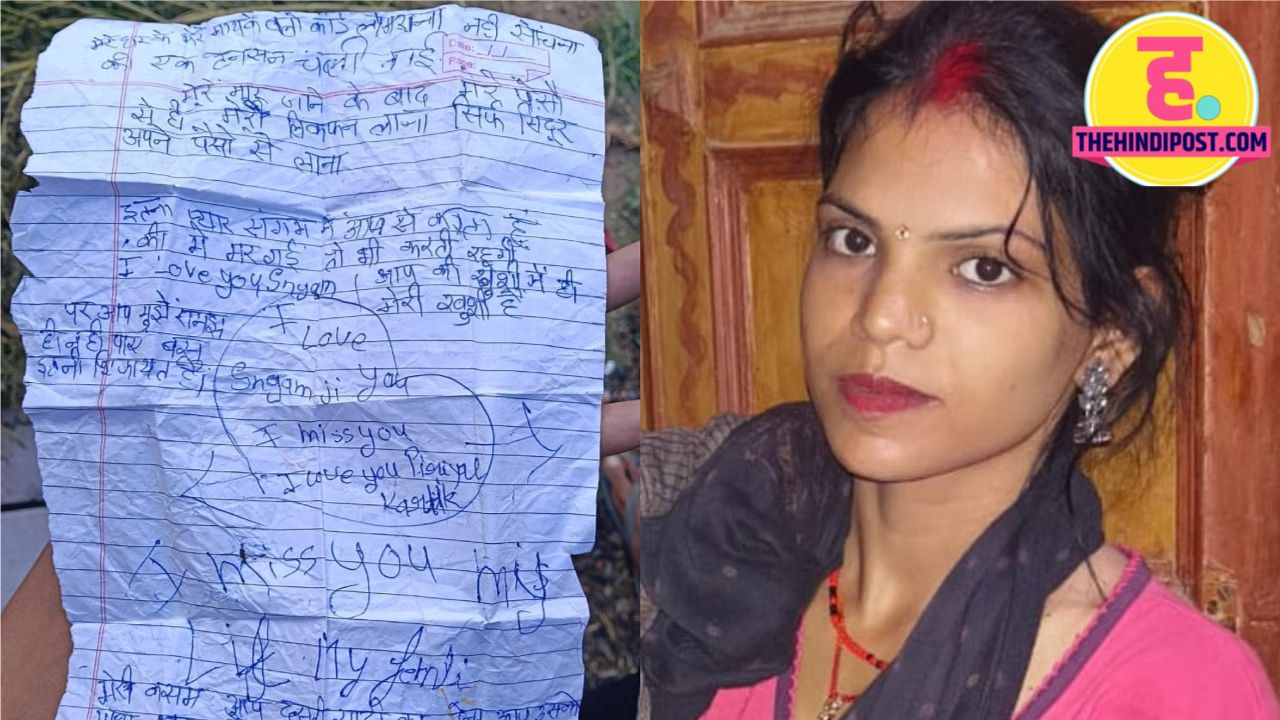 मेरे घर के मेरे मायके वालो कोई नही सोचना
की एक टेनसन चली गई
Date:
Page:
मेरे मर जाने के बाद मेरे पैसौ
से ही मेरा लाना सिर्फ सिदूर
अपने पैसो से लाना
इतना प्यार संगम में आप से करती हूँ
की में मर गई तो भी करती रहूगी
I Love you Sngam आप की खुशी में ही
मेरी खुशी है
पर आप मुझे समझ
ही नही पाए बस
इतना शिकायत है
I
Love
Sngam ji you
I miss you
I Love you
I miss you my
Life My femli
मेरी कसम आप दुसरी
ह.
THEHINDIPOST.COM